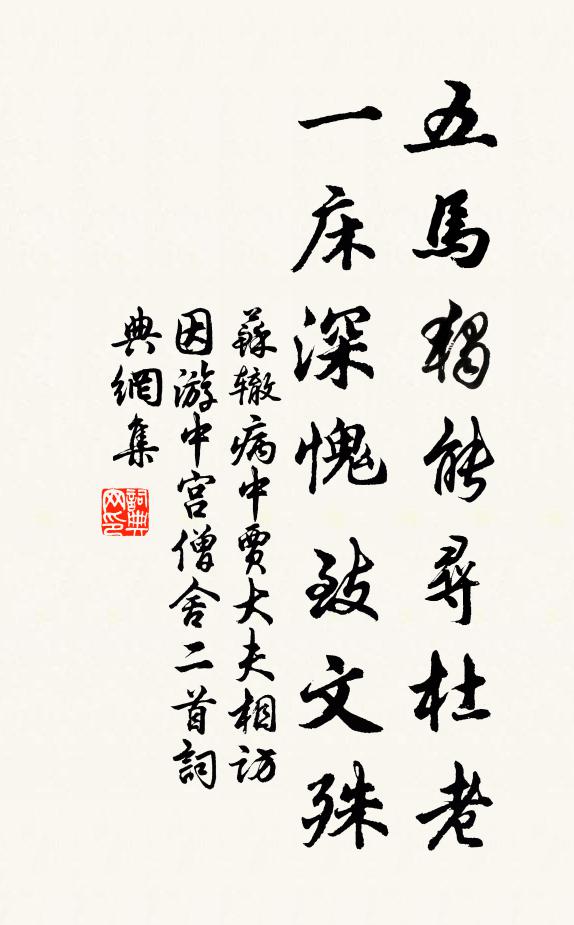 五馬獨能尋杜老
一床深愧致文殊
蘇辙病中賈大夫相訪
因游中宫僧舍二首詞
典網集
詞典网印